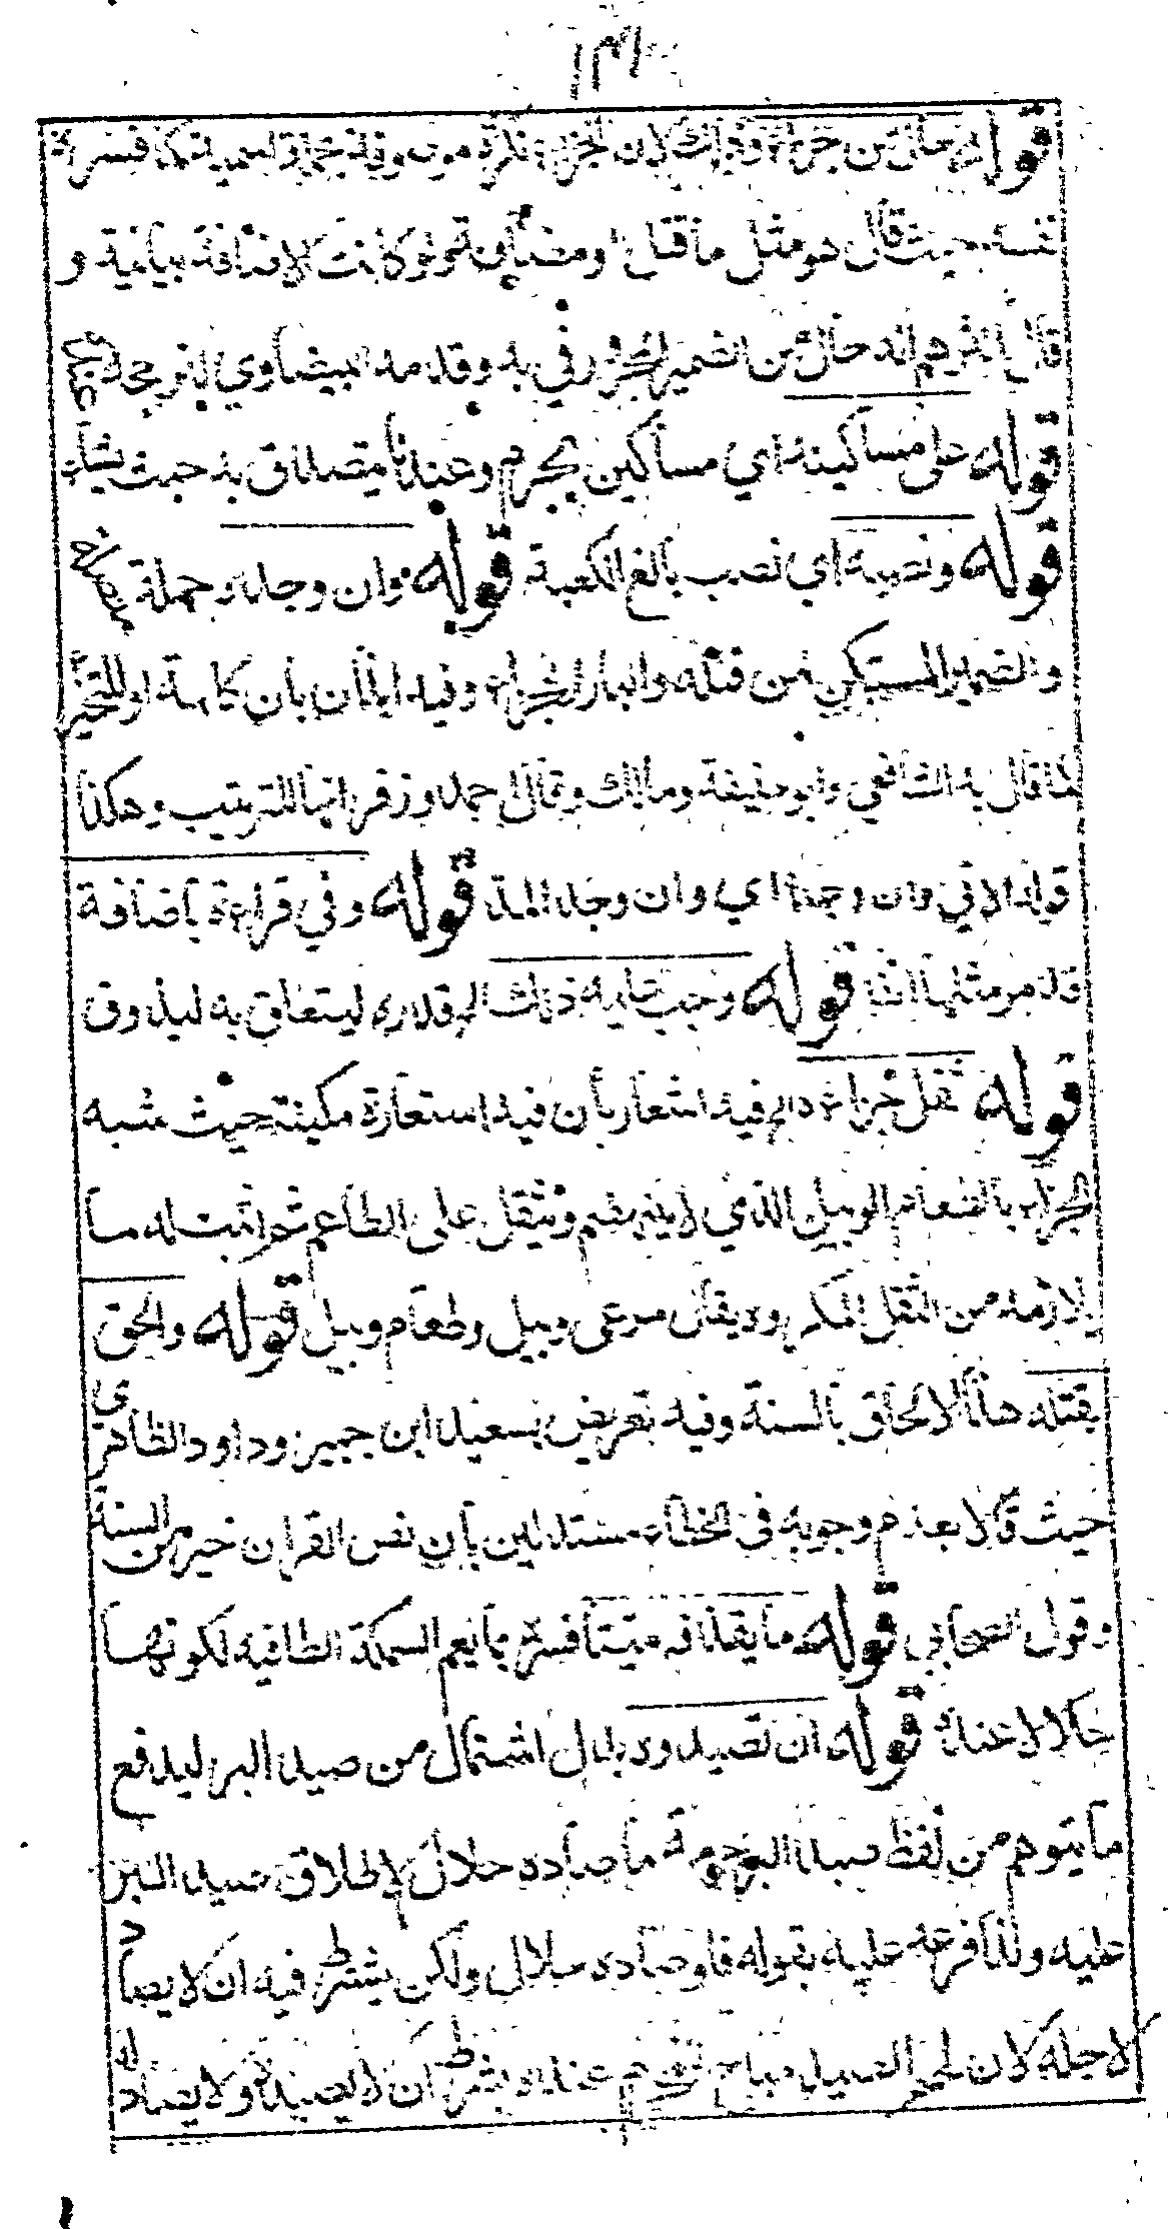 ١٣١
قوله حال من جزاء وذلك لان الجزاء نكرة موصوفة
نفسه حيث قال هو مثل ما قتل او مضافة ولو كانت الاضافة بيانية و
قال انه حال من الضمير المجرور في به وقدمه البيضاوي
قوله على مساكينه اي مساكين الحرم وعندنا يتصدق به حيث يشاء
قوله ونصبه اي نصب بالغ الكعبة قوله وان وجده جملة
والضمير المستكن لمن قتله والبارز للجزاء وفيه ايذان بان كلمة او للتخيير
كما قال به الشافعي وابو حنيفة ومالك وقال احمد وزفر انها للترتيب وهكذا
قوله الاتي وان وجدنا اي وان وجد المد قوله وفي قراءة باضافة
قد مر مثلها انفا قوله وجب عليه ذلك الخ قدره ليتعلق به ليذوق
قوله ثقل جزاء الخ فيه اشعار بان فيه استعارة مكينة حيث شبه
الجزاء بالطعام الوبيل الذي لا ينهضم ويثقل على الطاعم ثم اثبت له ما
يلازمه من الثقل المكروه يقال مرعى وبيل وطعام وبيل قوله والحق
بقتله هذا الالحاق بالسنة وفيه تعريض بسعيد ابن جبير وداود الظاهري
حيث قالا بعدم وجوبه في الخطاء مستدلين بان نص القران خير من السنة
وقول الصحابي قوله ما يقذفه ميتا فسره بما يعم السمكة الطافيه لكونها
حلالا عندك قوله ان تصيدوه بدل اشتمال من صيد البر ليدفع
ما يتوهم من لفظ صيد البر حرمة ما صاده حلال لاطلاق صيد البر
عليه ولذا فرعه عليه بقوله فلو صاده حلال ولكن يشترط فيه ان لا يصاد
لاجله لان لحم الصيد مباح للمحرم عنده بشرط ان لا يصيده ولا يصاد له